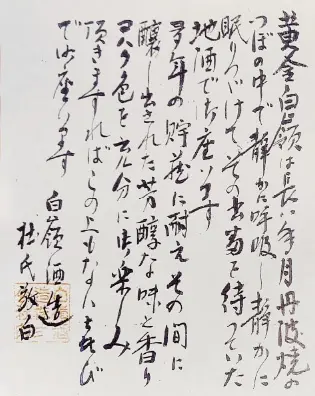 黄金白嶺は長い年月丹波焼の
つぼの中で静かに呼吸し静かに
眠りつづけてその出番を待っていた
地酒で御座います
多年の貯蔵に耐えその間に
醸し出された芳醇な味と香り
コハク色を充分に御楽しみ
頂きますればこの上もない喜び
で御座います
白嶺酒造
杜氏敬白